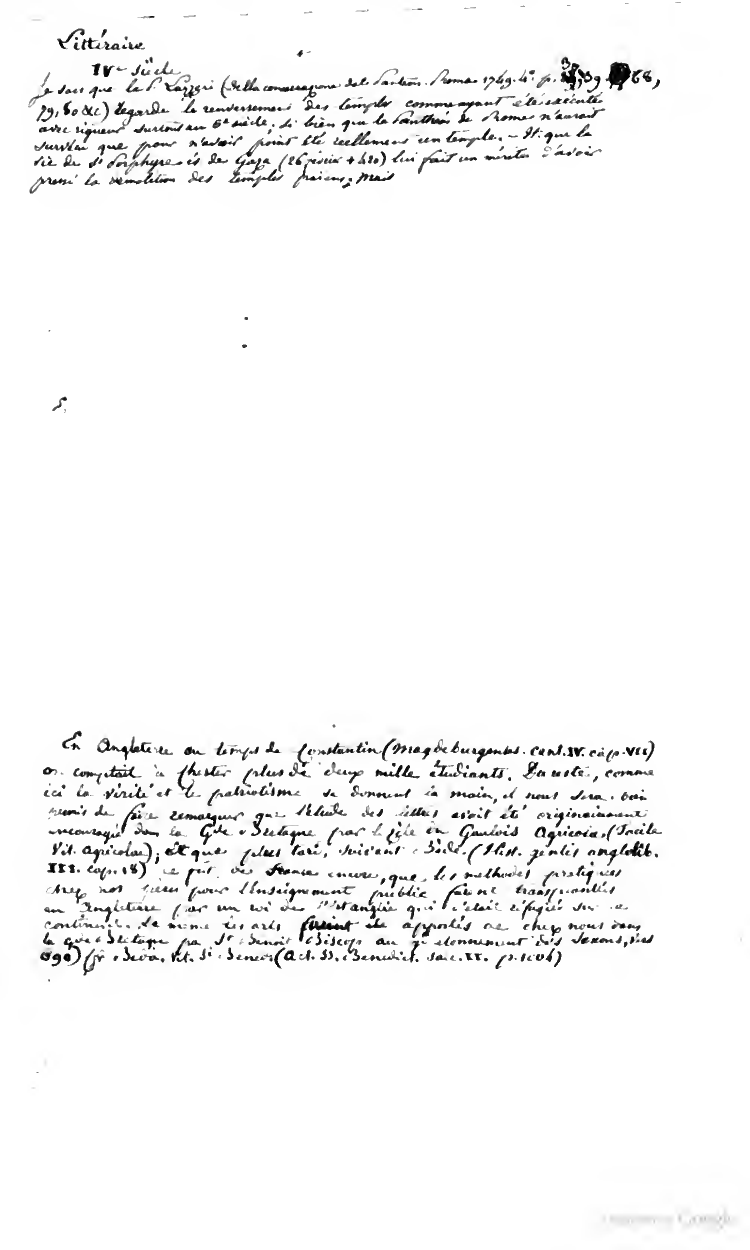 Littéraire
IVe Siècle
Je sais que le P. Lazzeri (della consecrazione del Panteon. Roma 1749. 4°. p. 39, 68,
79, 80 &c) regarde le renversement des temples comme ayant été exécuté
avec rigueur surtout au 5e siècle; si bien que le Panthéon de Rome n'aurait
survécu que pour n'avoir point été réellement un temple. — It. que la
vie de St Porphyre év. de Gaza (26 février + 420) lui fait un mérite d'avoir
pressé la démolition des temples païens; mais
S.
En Angleterre au temps de Constantin (Magdeburgens. cent. IV. cap. VII)
on comptait à Chester plus de deux mille étudiants. Du reste, comme
ici la vérité et le patriotisme se donnent la main, il nous sera bien
permis de faire remarquer que l'étude des lettres avait été originairement
encouragée dans la Gde Bretagne par le zèle du Gaulois Agricola (Tacite
Vit. Agricolae); et que plus tard, suivant Bède (Hist. gentis angl. lib.
III. cap. 18) ce fut de France encore, que les méthodes pratiquées
chez nos pères pour l'enseignement public furent transplantées
en Angleterre par un roi de l'Estanglie qui s'était réfugié sur le
continent. De même les arts furent été apportés de chez nous dans
la Gde Bretagne par St Benoît Biscop au gd étonnement des Saxons, vers
690) (fr Beda, Vit. St Bened (Act. SS. Benedict. saec. II. p. 1004)